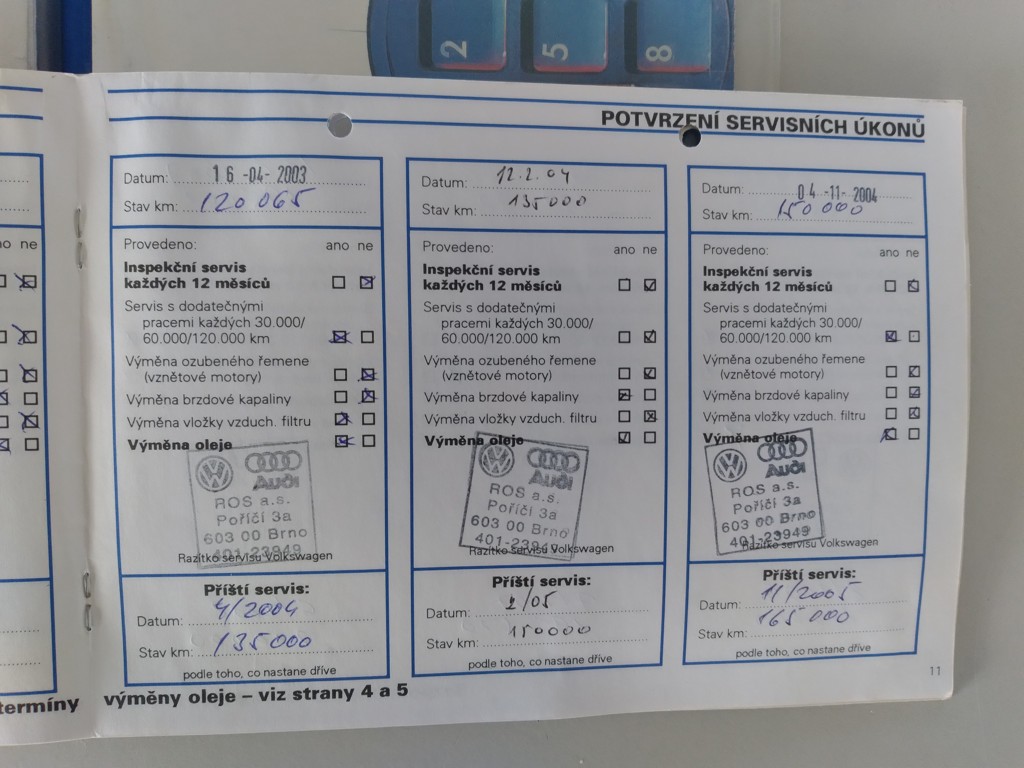 2
5
8
POTVRZENÍ SERVISNÍCH ÚKONŮ
Datum: 16 -04- 2003
Stav km: 120 065
Provedeno: ano ne
Inspekční servis
každých 12 měsíců
Servis s dodatečnými
pracemi každých 30.000/
60.000/120.000 km
Výměna ozubeného řemene
(vznětové motory)
Výměna brzdové kapaliny
Výměna vložky vzduch. filtru
Výměna oleje
Audi
ROS a.s.
Poříčí 3a
603 00 Brno
401-23949
Razítko servisu Volkswagen
Příští servis:
Datum: 4/2004
Stav km: 135 000
podle toho, co nastane dříve
Datum: 12.2.04
Stav km: 135000
Provedeno: ano ne
Inspekční servis
každých 12 měsíců
Servis s dodatečnými
pracemi každých 30.000/
60.000/120.000 km
Výměna ozubeného řemene
(vznětové motory)
Výměna brzdové kapaliny
Výměna vložky vzduch. filtru
Výměna oleje
Audi
ROS a.s.
Poříčí 3a
603 00 Brno
401-23949
Razítko servisu Volkswagen
Příští servis:
Datum: 2/05
Stav km: 150000
podle toho, co nastane dříve
Datum: 04 -11- 2004
Stav km: 150 000
Provedeno: ano ne
Inspekční servis
každých 12 měsíců
Servis s dodatečnými
pracemi každých 30.000/
60.000/120.000 km
Výměna ozubeného řemene
(vznětové motory)
Výměna brzdové kapaliny
Výměna vložky vzduch. filtru
Výměna oleje
Audi
ROS a.s.
Poříčí 3a
603 00 Brno
401-23949
Razítko servisu Volkswagen
Příští servis:
Datum: 11/2005
Stav km: 165 000
podle toho, co nastane dříve
ne
termíny výměny oleje – viz strany 4 a 5
11